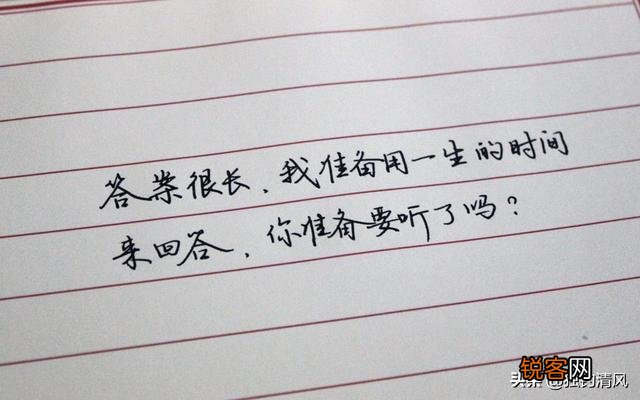 答案很长，我准备用一生的时间
来回答，你准备要听了吗？
锐客网
头条 @独钓清风